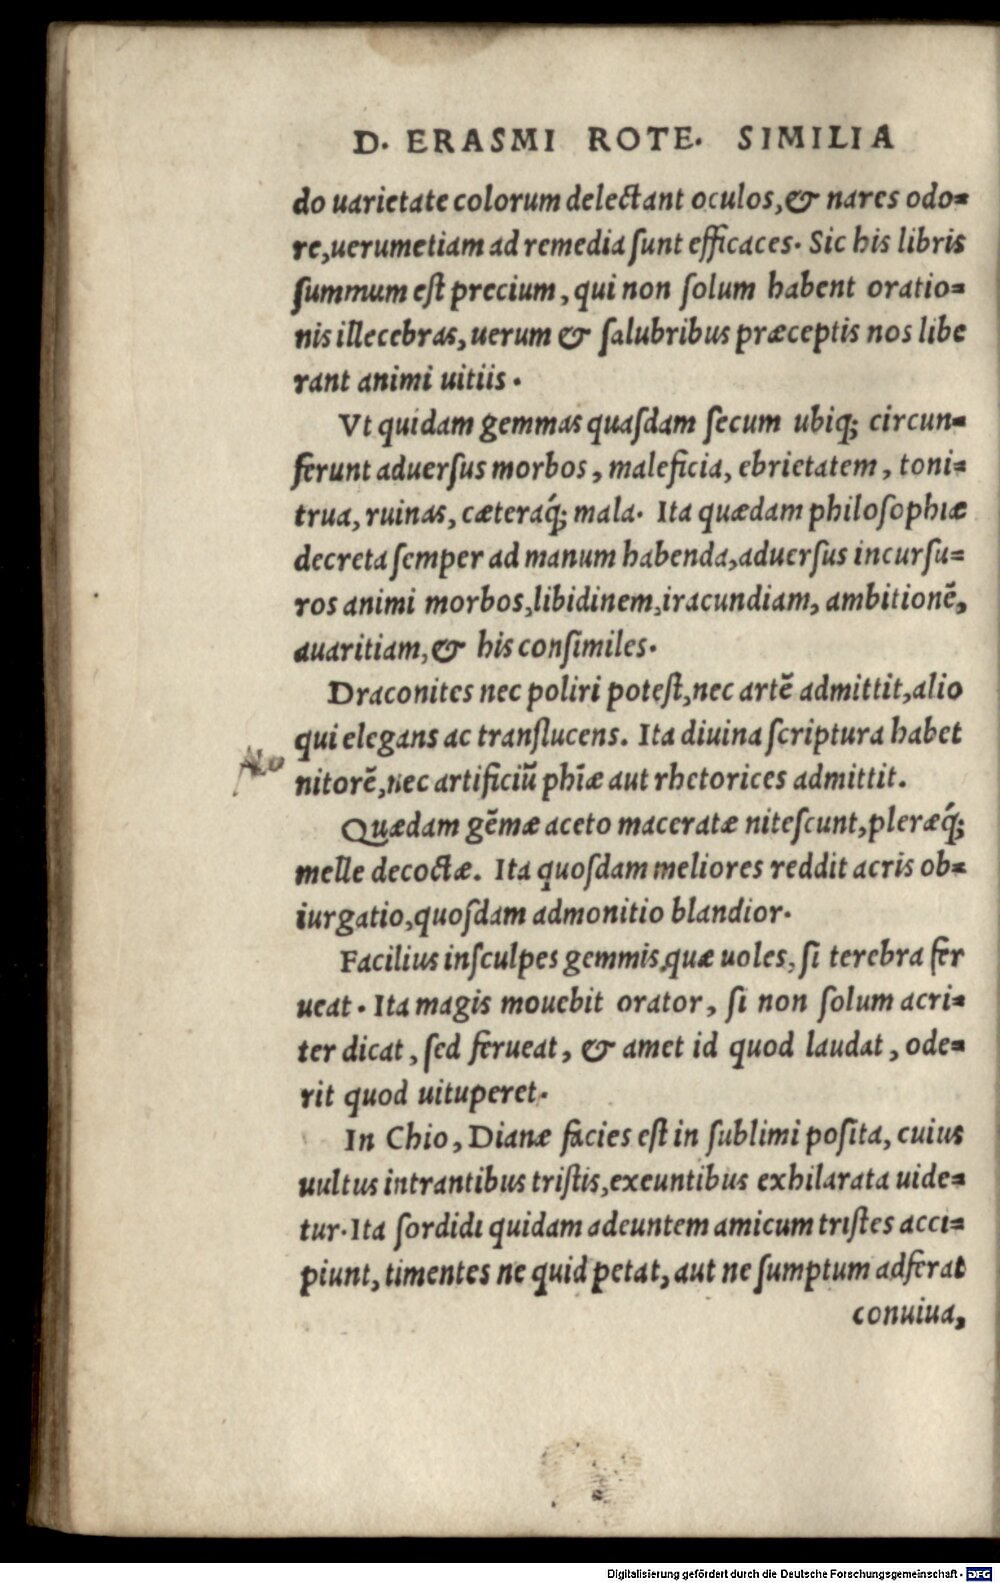 D. ERASMI ROTE. SIMILIA
do uarietate colorum delectant oculos, & nares odo=
re, uerumetiam ad remedia ſunt efficaces. Sic his libris
ſummum eſt precium, qui non ſolum habent oratio=
nis illecebras, uerum & ſalubribus præceptis nos libe
rant animi uitiis.
Vt quidam gemmas quaſdam ſecum ubiq; circun=
ferunt aduerſus morbos, maleficia, ebrietatem, toni=
trua, ruinas, cæteraq́; mala. Ita quædam philoſophiæ
decreta ſemper ad manum habenda, aduerſus incurſu=
ros animi morbos, libidinem, iracundiam, ambitionē,
auaritiam, & his conſimiles.
Draconites nec poliri poteſt, nec artē admittit, alio
qui elegans ac tranſlucens. Ita diuina ſcriptura habet
nitorē, nec artificiū phīæ aut rhetorices admittit.
Quædam gēmæ aceto maceratæ niteſcunt, pleræq́;
melle decoctæ. Ita quoſdam meliores reddit acris ob=
iurgatio, quoſdam admonitio blandior.
Facilius inſculpes gemmis, quæ uoles, ſi terebra fer
ueat. Ita magis mouebit orator, ſi non ſolum acri=
ter dicat, ſed ferueat, & amet id quod laudat, ode=
rit quod uituperet.
In Chio, Dianæ facies eſt in ſublimi poſita, cuius
uultus intrantibus triſtis, exeuntibus exhilarata uide=
tur. Ita ſordidi quidam adeuntem amicum triſtes acci=
piunt, timentes ne quid petat, aut ne ſumptum adferat
conuiua,
Digitalisierung gefördert durch die Deutsche Forschungsgemeinschaft - DFG